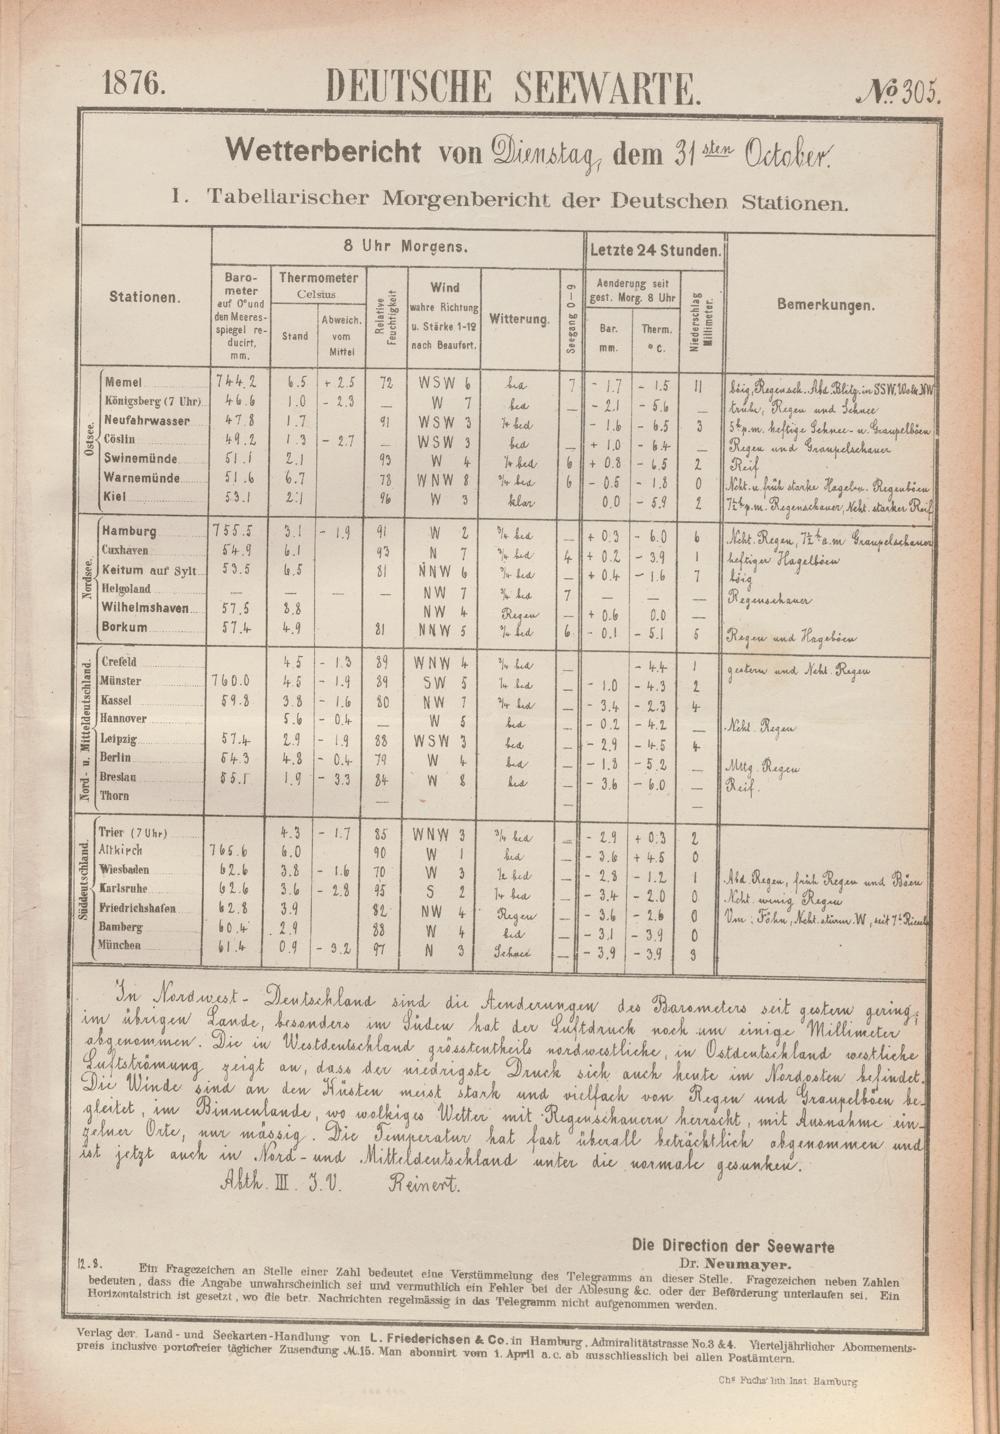 1876. DEUTSCHE SEEWARTE. No. 305.
Wetterbericht von Dienstag, dem 31sten October.
I. Tabellarischer Morgenbericht der Deutschen Stationen.
Stationen.
8 Uhr Morgens.
Letzte 24 Stunden.
Bemerkungen.
Baro-
meter
auf 0° und
den Meeres-
spiegel re-
ducirt,
mm.
Thermometer
Celsius
Stand
Abweich.
vom
Mittel
Relative
Feuchtigkeit
Wind
wahre Richtung
u. Stärke 1-12
nach Beaufort.
Witterung.
Seegang 0-9
Aenderung seit
gest. Morg. 8 Uhr
Bar.
mm.
Therm.
° C.
Niederschlag
Millimeter.
Ostsee.
Memel 744.2 6.5 + 2.5 72 WSW 6 bed 7 - 1.7 - 1.5 11 böig, Regensch. Abd. Blitz in SSW, W u. NW
Königsberg (7 Uhr) 46.6 1.0 - 2.3 — W 7 bed — - 2.1 - 5.6 — trübe, Regen und Schnee
Neufahrwasser 47.8 1.7 91 WSW 3 ¼ bed - 1.6 - 6.5 3 5h p.m. heftige Schnee- u. Graupelböen
Cöslin 49.2 1.3 - 2.7 — WSW 3 bed — + 1.0 - 6.4 — Regen und Graupelschauer
Swinemünde 51.1 2.1 93 W 4 ¼ bed 6 + 0.8 - 6.5 2 Reif
Warnemünde 51.6 6.7 78 WNW 8 ¾ bed 6 - 0.5 - 1.8 0 Ncht. u. früh starke Hagel u. Regenböen
Kiel 53.1 2.1 96 W 3 klar 0.0 - 5.9 2 7½h p.m. Regenschauer, Ncht. starker Reif
Nordsee.
Hamburg 755.5 3.1 - 1.9 91 W 2 ¾ bed — + 0.3 - 6.0 6 Ncht. Regen, 7½h a.m. Graupelschauer
Cuxhaven 54.9 6.1 93 N 7 ¾ bed 4 + 0.2 - 3.9 1 heftiger Hagelböen
Keitum auf Sylt 53.5 6.5 81 NNW 6 ¾ bed — + 0.4 - 1.6 7 böig
Helgoland — — — — NW 7 ¾ bed 7 — — — Regenschauer
Wilhelmshaven 57.5 8.8 NW 4 Regen — + 0.6 0.0 —
Borkum 57.4 4.9 81 NNW 5 ¾ bed 6 - 0.1 - 5.1 5 Regen und Hagelböen
Nord- u. Mitteldeutschland.
Crefeld 4.5 - 1.3 89 WNW 4 ¾ bed — - 4.4 1 gestern und Ncht. Regen
Münster 760.0 4.5 - 1.9 89 SW 5 ¼ bed — - 1.0 - 4.3 2
Kassel 59.8 3.8 - 1.6 80 NW 7 ¾ bed — - 3.4 - 2.3 4
Hannover 5.6 - 0.4 — W 5 bed — - 0.2 - 4.2 — Ncht. Regen
Leipzig 57.4 2.9 - 1.9 88 WSW 3 bed — - 2.9 - 4.5 4
Berlin 54.3 4.8 - 0.4 79 W 4 bed — - 1.8 - 5.2 — Mttg. Regen
Breslau 55.1 1.9 - 3.3 84 W 8 bed — - 3.6 - 6.0 — Reif.
Thorn — — —
Süddeutschland.
Trier (7 Uhr) 4.3 - 1.7 85 WNW 3 ¾ bed — - 2.9 + 0.3 2
Altkirch 765.6 6.0 90 W 1 bed — - 3.6 + 4.5 0
Wiesbaden 62.6 3.8 - 1.6 70 W 3 ½ bed — - 2.8 - 1.2 1 Abd. Regen, früh Regen und Böen
Karlsruhe 62.6 3.6 - 2.8 95 S 2 ¼ bed — - 3.4 - 2.0 0 Ncht. winig Regen
Friedrichshafen 62.8 3.9 82 NW 4 Regen — - 3.6 - 2.6 0 Vm: Föhn, Ncht. stürm. W, seit 7h
Bamberg 60.4 2.9 88 W 4 bed — - 3.1 - 3.9 0
München 61.4 0.9 - 3.2 97 N 3 Schnee — - 3.9 - 3.9 3
In Nordwest-Deutschland sind die Aenderungen des Barometers seit gestern gering,
im übrigen Lande, besonders im Süden hat der Luftdruck noch um einige Millimeter
abgenommen. Die in Westdeutschland grösstentheils nordwestliche, in Ostdeutschland westliche
Luftströmung zeigt an, dass der niedrigste Druck sich auch heute im Nordosten befindet.
Die Winde sind an den Küsten meist stark und vielfach von Regen und Graupelböen be-
gleitet, im Binnenlande, wo wolkiges Wetter mit Regenschauern herrscht, mit Ausnahme ein-
zelner Orte, nur mässig. Die Temperatur hat fast überall beträchtlich abgenommen und
ist jetzt auch in Nord- und Mitteldeutschland unter die normale gesunken.
Abth. III. I.V. Reinert.
Die Direction der Seewarte
Dr. Neumayer.
12.8. Ein Fragezeichen an Stelle einer Zahl bedeutet eine Verstümmelung des Telegramms an dieser Stelle. Fragezeichen neben Zahlen
bedeuten, dass die Angabe unwahrscheinlich sei und vermuthlich ein Fehler bei der Ablesung &c. oder der Beförderung unterlaufen sei. Ein
Horizontalstrich ist gesetzt, wo die betr. Nachrichten regelmässig in das Telegramm nicht aufgenommen werden.
Verlag der Land- und Seekarten-Handlung von L. Friederichsen & Co. in Hamburg, Admiralitätstrasse No. 3 & 4. Vierteljährlicher Abonnements-
preis inclusive portofreier täglicher Zusendung M. 15. Man abonnirt vom 1. April a.c. ab ausschliesslich bei allen Postämtern.
Chs Fuchs' lith. Inst. Hamburg